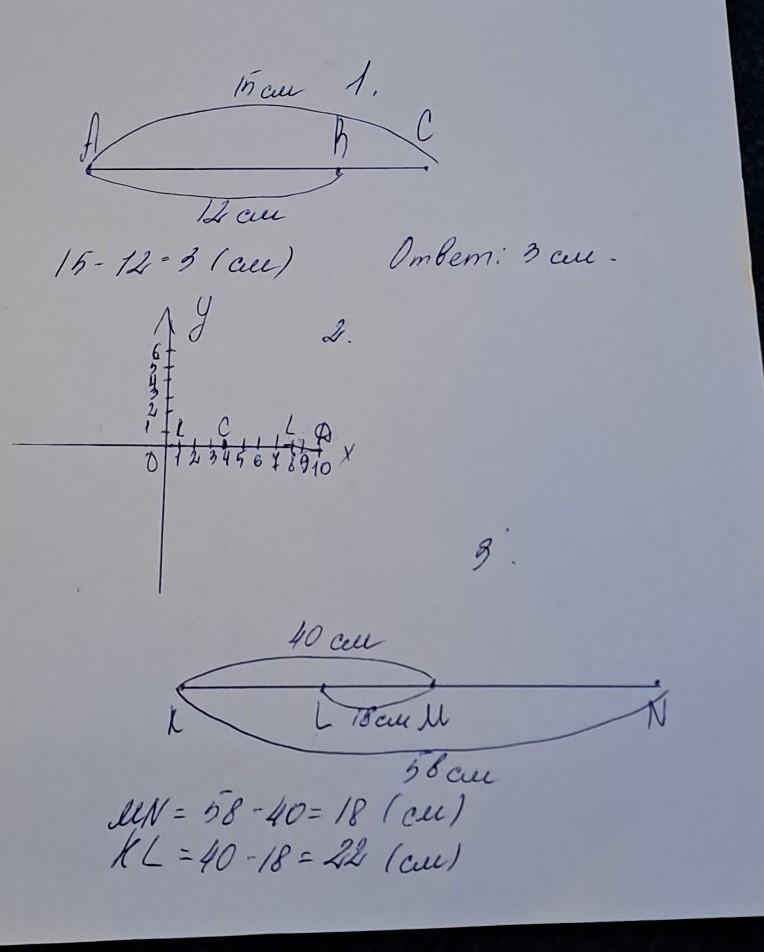 15 см 1.
A B C
12 см
15 - 12 = 3 (см) Ответ: 3 см.
y
2.
6
5
4
3
2
1 K C L D
0 1 2 3 4 5 6 7 8 9 10 x
3.
40 см
K L 18 см M N
58 см
MN = 58 - 40 = 18 (см)
KL = 40 - 18 = 22 (см)